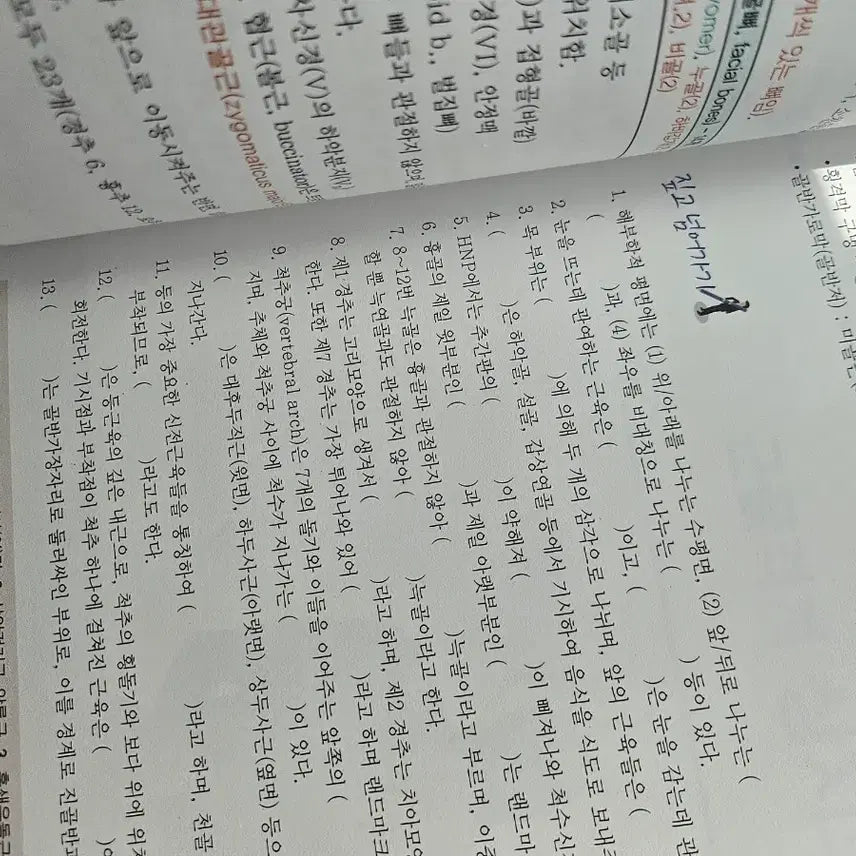 개씩 있는 뼈임).
facial bones)
vomer), 누골(2),
비골(2)
미소골 등
위치함.
)과 접형골(바깥)
경(VI), 안정맥
id b., 벌집뼈)
뼈들과 관절하지 않으며
다.
차신경(V)의 하악분지
협근(볼근, buccinator)은
대관골근(zygomaticus
앞으로 이동시켜주는
모두 23개(경추 6, 흉추 12,
• 횡격막 구멍
• 골반가로막(골반저) :
짚고 넘어가기
1. 해부학적 평면에는 (1) 위/아래를 나누는 수평면, (2) 앞/뒤로 나누는 (
( )과, (4) 좌우를 비대칭으로 나누는 ( ) 등이 있다.
2. 눈을 뜨는데 관여하는 근육은 ( )이고, ( )은 눈을 감는데 관
3. 목 부위는 ( )에 의해 두 개의 삼각으로 나뉘며, 앞의 근육들은 (
4. ( )은 하악골, 설골, 갑상연골 등에서 기시하여 음식을 식도로 보내
5. HNP에서는 추간판의 ( )이 약해져 ( )이 삐져나와 척수신
6. 흉골의 제일 윗부분인 ( )과 제일 아랫부분인 ( )는 랜드마
7. 8~12번 늑골은 흉골과 관절하지 않아 ( )늑골이라고 부르며, 이중
할 뿐 늑연골과도 관절하지 않아 ( )늑골이라고 한다.
8. 제1 경추는 고리모양으로 생겨서 ( )라고 하며, 제2 경추는 치아모양
한다. 또한 제7 경추는 가장 튀어나와 있어 ( )라고 하며 랜드마크
9. 척추궁(vertebral arch)은 7개의 돌기와 이들을 이어주는 앞쪽의 (
지며, 추체와 척추궁 사이에 척수가 지나가는 ( )이 있다.
10. ( )은 대후두직근(윗면), 하두사근(아랫면), 상두사근(옆면) 등으
지나간다.
11. 등의 가장 중요한 신전근육들을 통칭하여 ( )라고 하며, 천골
부착되므로, ( )라고도 한다.
12. ( )은 등근육의 깊은 내근으로, 척추의 횡돌기와 보다 위에 위치
회전한다. 기시점과 부착점이 척추 하나에 걸쳐진 근육은 (
13. ( )는 골반가장자리로 둘러싸인 부위로, 이를 경계로 진골반과